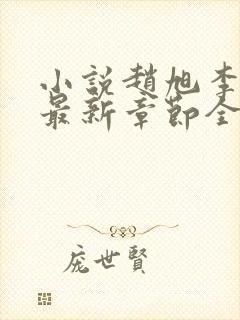 小説趙旭李
最新章節全
庞世賢